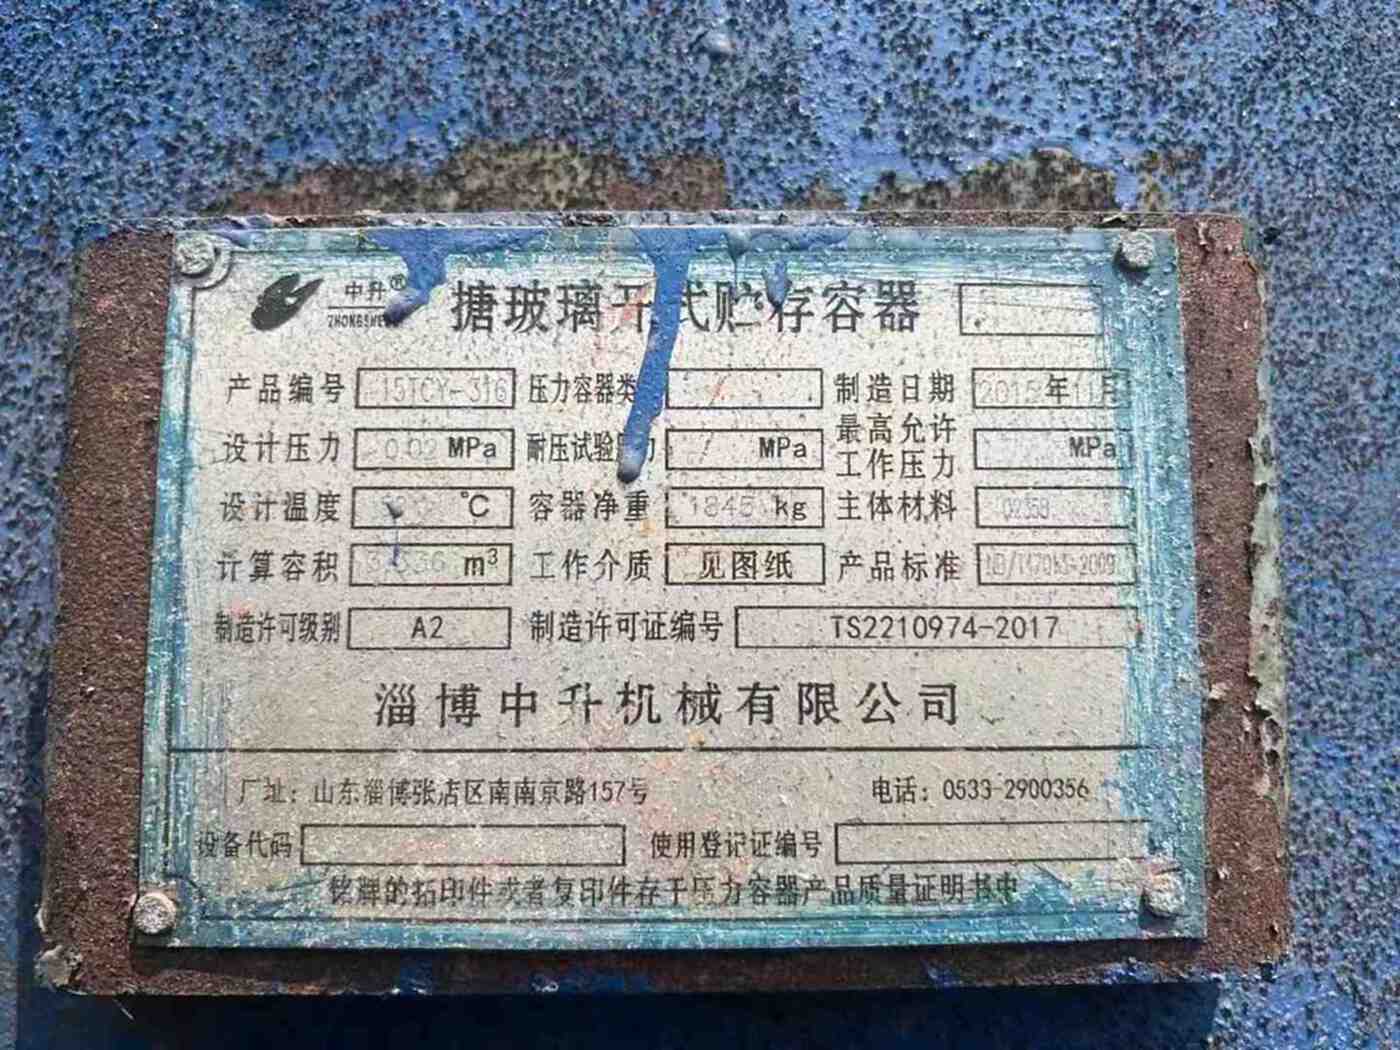 中升® 搪玻璃开式贮存容器
ZHONGSHENG
产品编号 15TCY-316 压力容器类 / 制造日期 2015年11月
设计压力 0.02 MPa 耐压试验压力 / MPa 最高允许工作压力 MPa
设计温度 ℃ 容器净重 1845 kg 主体材料 Q235B
计算容积 m³ 工作介质 见图纸 产品标准
制造许可级别 A2 制造许可证编号 TS2210974-2017
淄博中升机械有限公司
厂址：山东淄博张店区南南京路157号 电话：0533-2900356
设备代码 使用登记证编号
铭牌的拓印件或者复印件存于压力容器产品质量证明书中